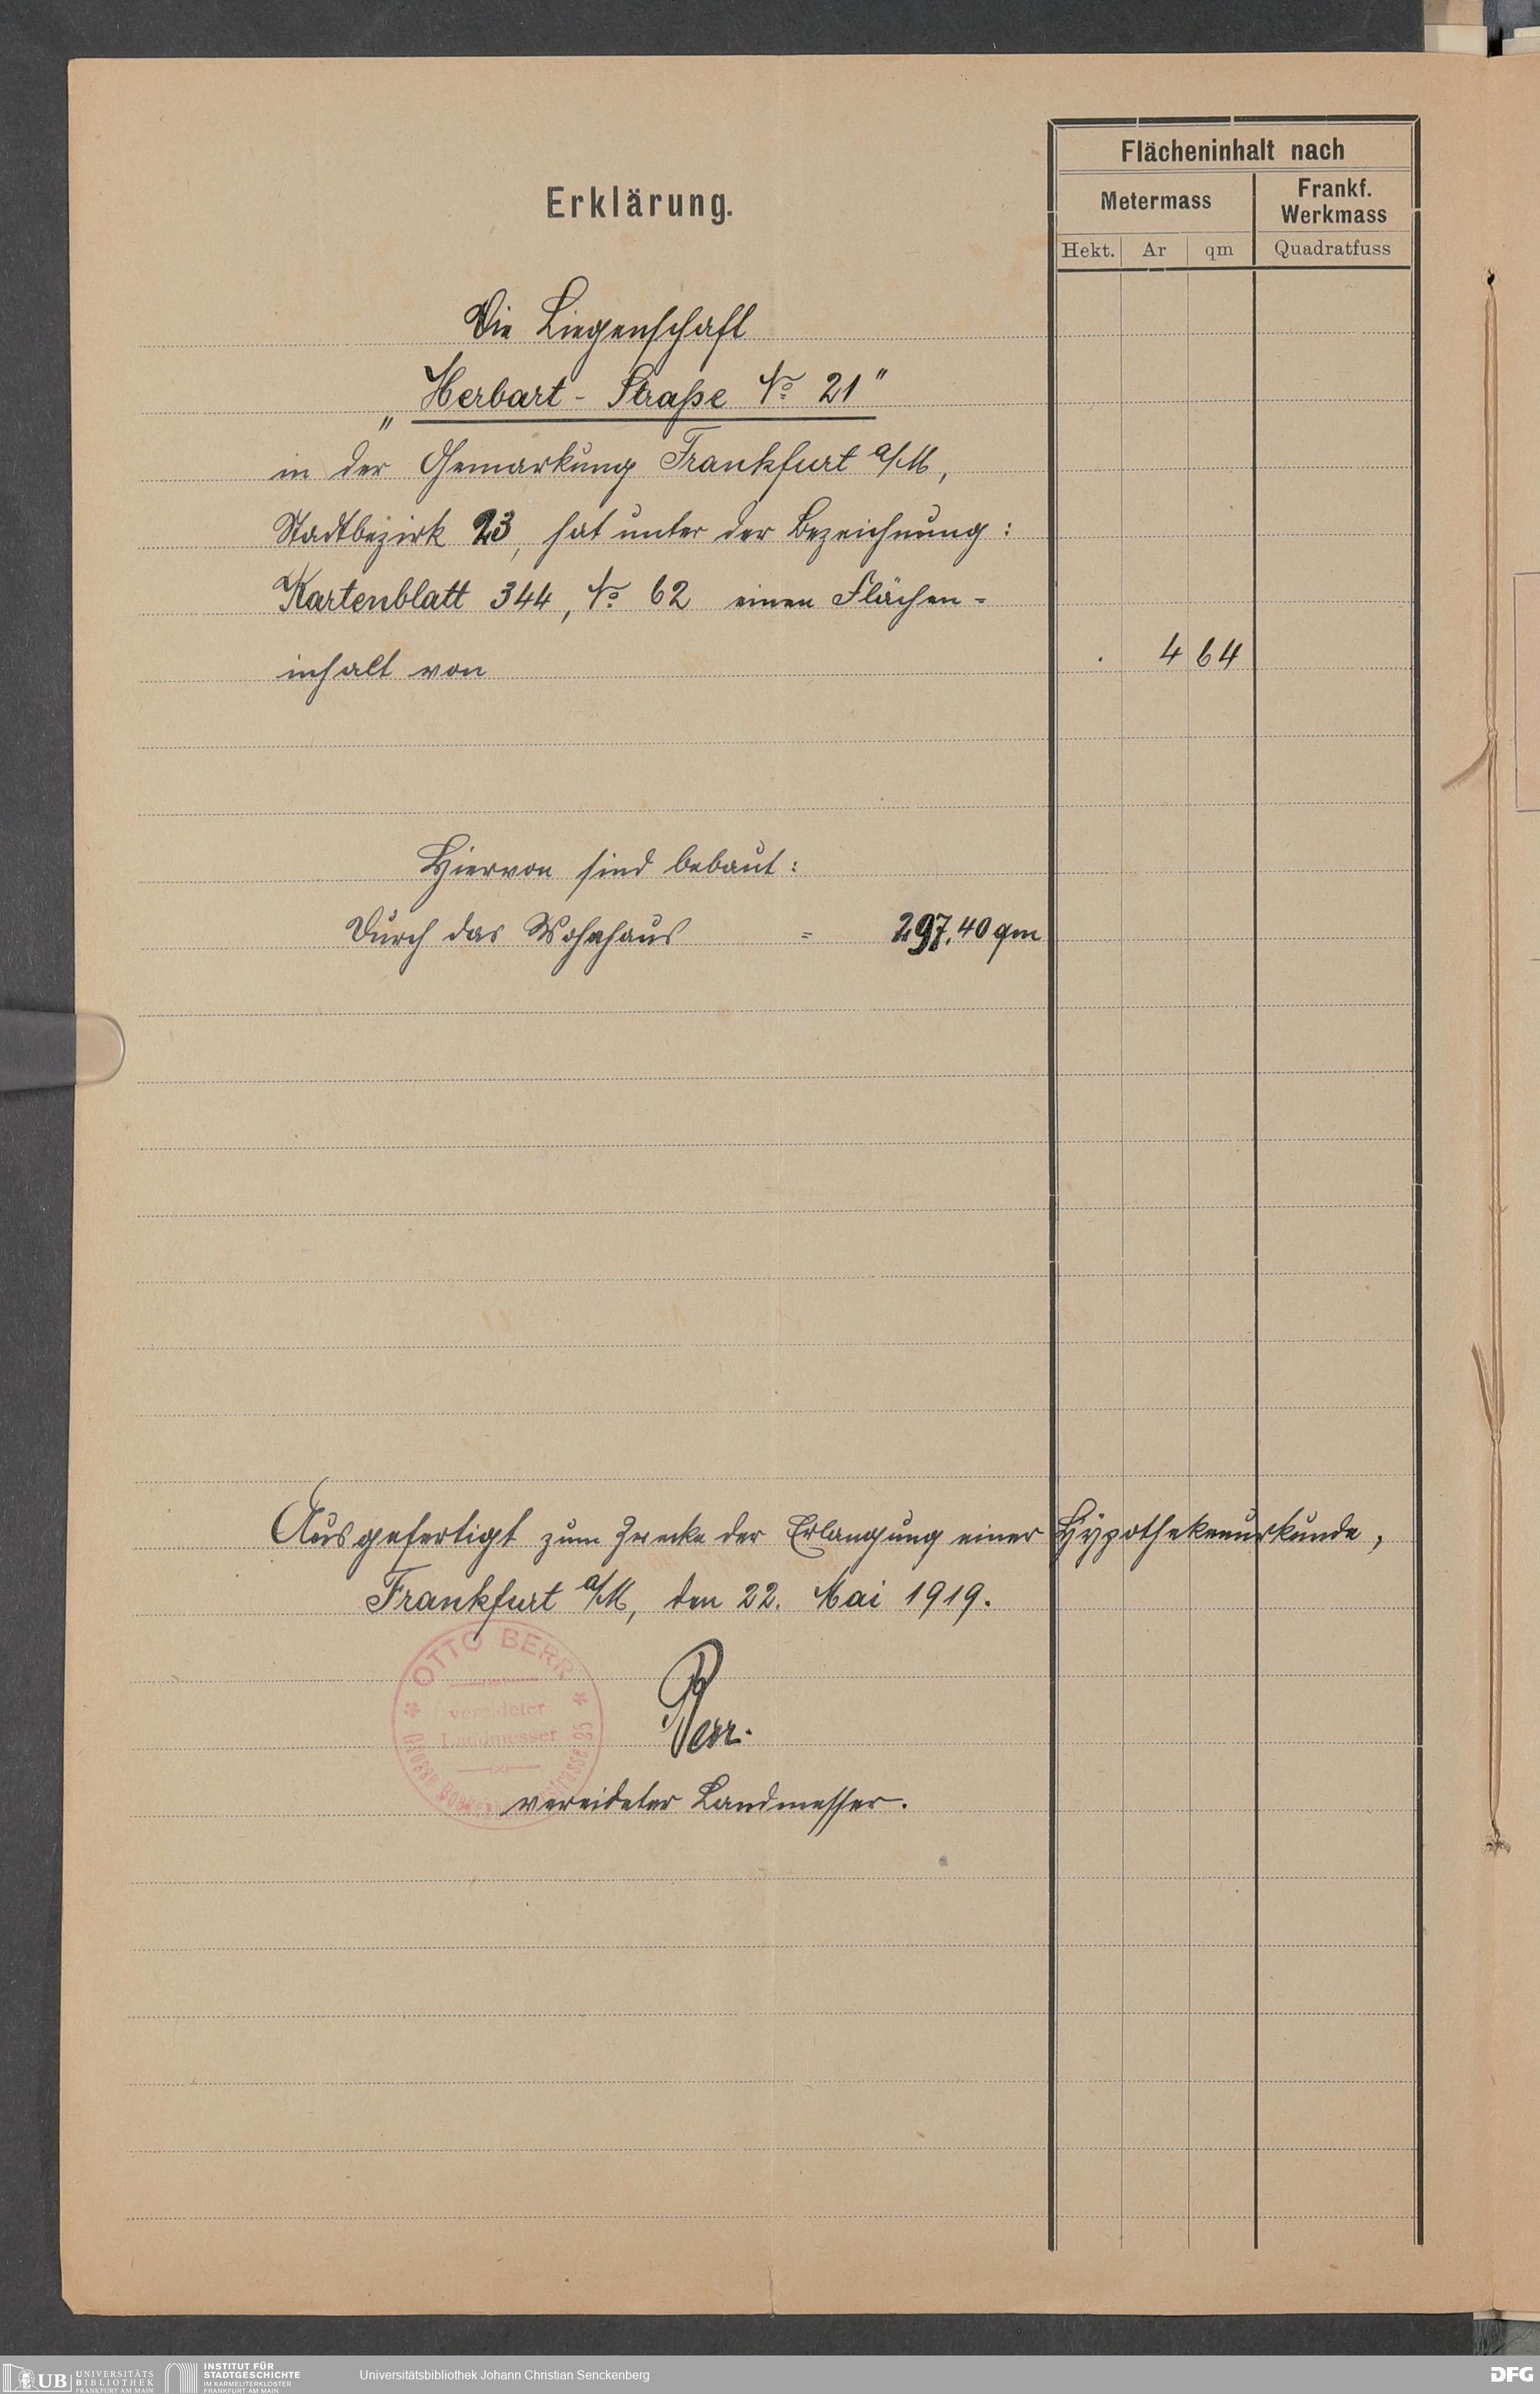 Flächeninhalt nach
Erklärung.
Metermass
Frankf.
Werkmass
Hekt. Ar qm Quadratfuss
Die Liegenschaft
„Herbart-Straße No 21"
in der Gemarkung Frankfurt a/M,
Stadtbezirk 23, hat unter der Bezeichnung:
Kartenblatt 344, No 62 einen Flächen=
inhalt von . 4 64
Hiervon sind bebaut:
Durch das Wohnhaus = 297,40 qm
Ausgefertigt zum Zwecke der Erlangung einer Hypothekenurkunde,
Frankfurt a/M, den 22. Mai 1919.
OTTO BERR
vereideter
Landmesser
Berr.
vereideter Landmesser.
UB UNIVERSITÄTS
BIBLIOTHEK
FRANKFURT AM MAIN
INSTITUT FÜR
STADTGESCHICHTE
IM KARMELITERKLOSTER
FRANKFURT AM MAIN
Universitätsbibliothek Johann Christian Senckenberg
DFG